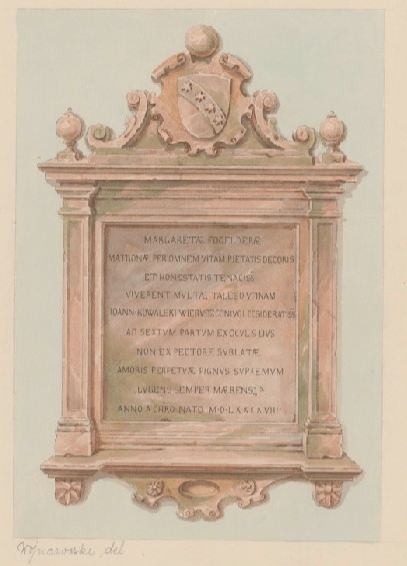 MARGARETÆ FOGELDERÆ
MATRONÆ PER OMNEM VITAM PIETATIS DECORIS
ET HONESTATIS TENACISS
VIVERENT MULTÆ TALLE UTINAM
IOANN KOWALEKI CONIUGI DESIDERATISS
AD SEXTUM PARTUM EX OCULIS EIUS
NON EX PECTORE SUBLATÆ
AMORIS PERPETUÆ PIGNUS SUPREMUM
LUGENS SEMPER MÆRENSQ
ANNO A CHRO NATO
del